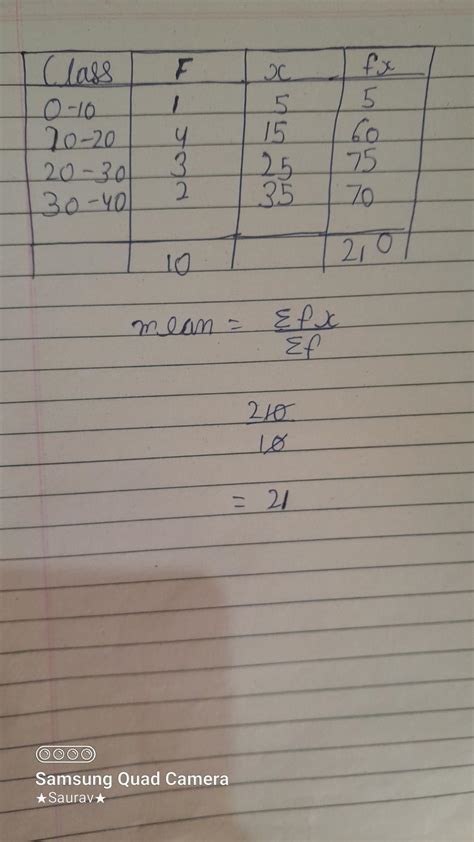 Class F x fx
0-10 1 5 5
10-20 4 15 60
20-30 3 25 75
30-40 2 35 70
10 210
mean = Σfx
Σf
210
10
= 21
Samsung Quad Camera
★Saurav★